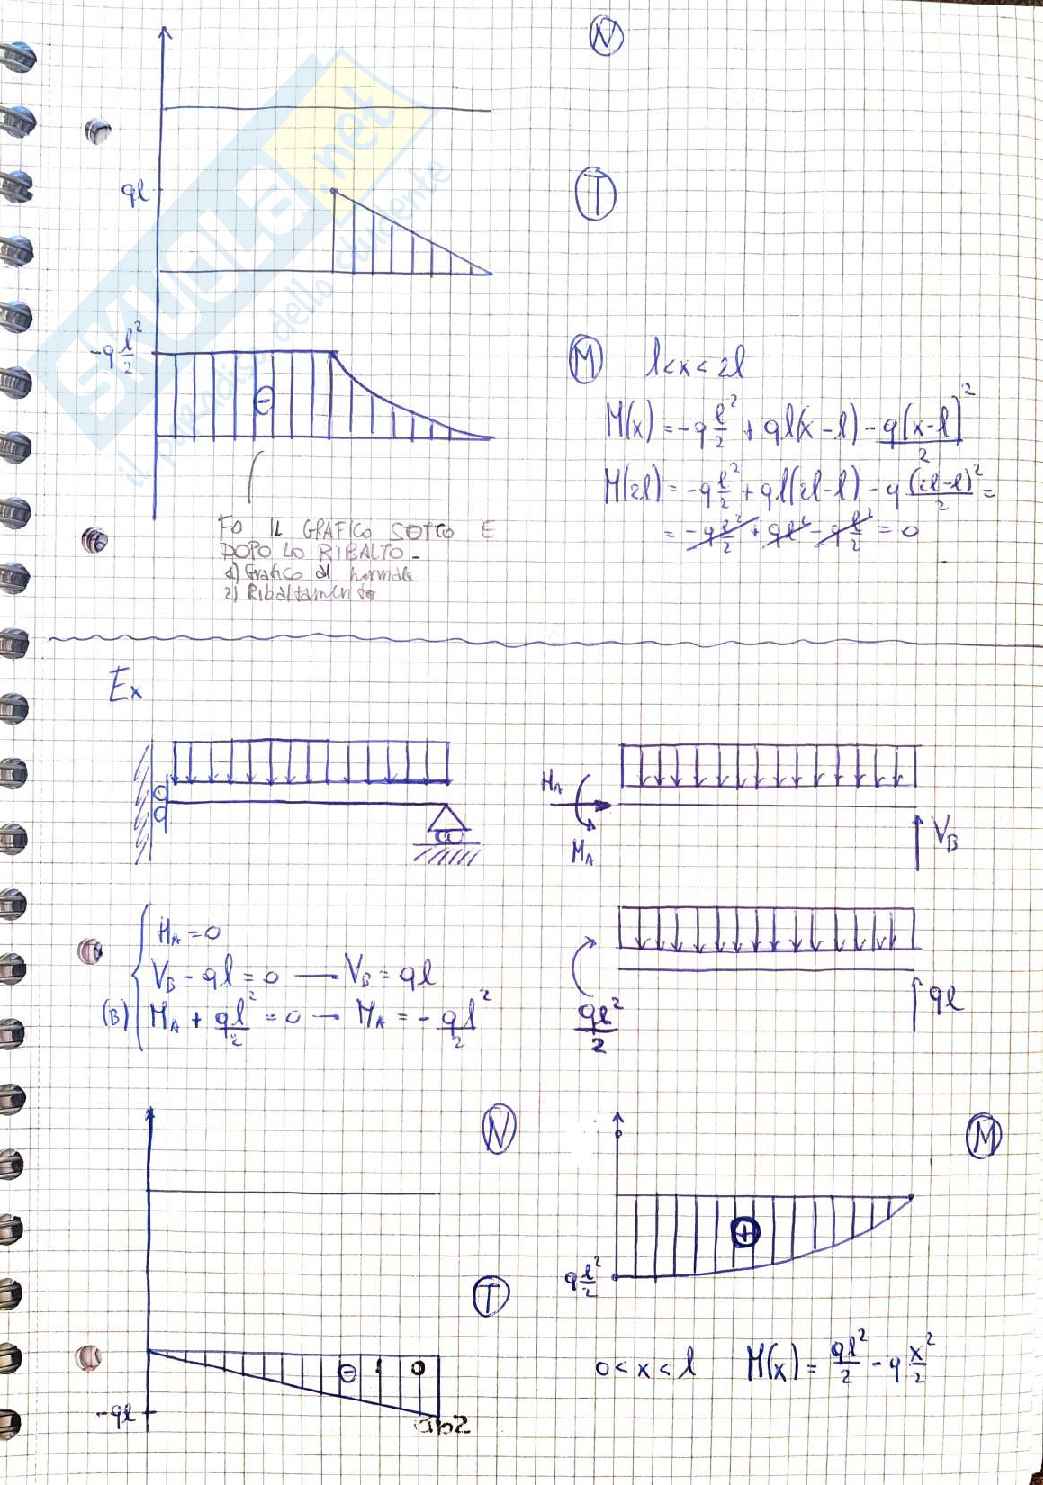 N
ql
T
-q l²/2
⊖
M l<x<2l
M(x) = -q l²/2 + ql(x-l) - q(x-l)²/2
M(2l) = -q l²/2 + ql(2l-l) - q (2l-l)²/2 =
= -q l²/2 + ql² - q l²/2 = 0
FO IL GRAFICO SOTTO E
DOPO LO RIBALTO-
1) Grafico al normale
2) Ribaltamento
SKUOLA.net
il paradiso dello studente
Ex
H_A
M_A
V_B
H_A = 0
V_B - ql = 0 — V_B = ql
(B) M_A + ql²/2 = 0 → M_A = - ql²/2
ql²/2
ql
N
M
⊕
q l²/2
T
⊖ 1 0
-ql
0<x<l M(x) = ql²/2 - q x²/2